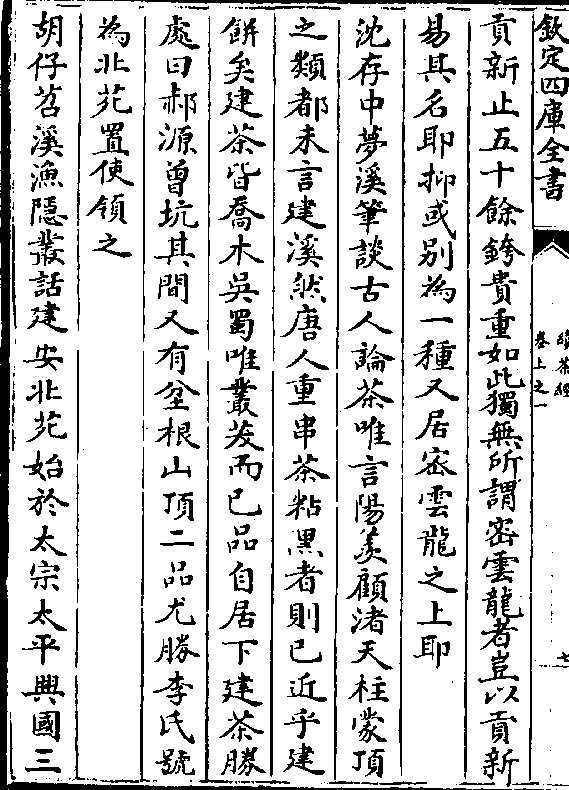 欽定四庫全書
續茶經
卷上之一
貢新止五十餘銙貴重如此獨無所謂密雲龍者豈以貢新
易其名耶抑或别為一種又居密雲龍之上耶
沈存中夢溪筆談古人論茶唯言陽羨顧渚天柱蒙頂
之類都未言建溪然唐人重串茶粘黑者則已近乎建
餅矣建茶皆喬木吳蜀唯叢茇而已品自居下建茶勝
處曰郝源曾坑其間又有坌根山頂二品尤勝李氏號
為北苑置使領之
胡仔苕溪漁隱叢話建安北苑始於太宗太平興國三